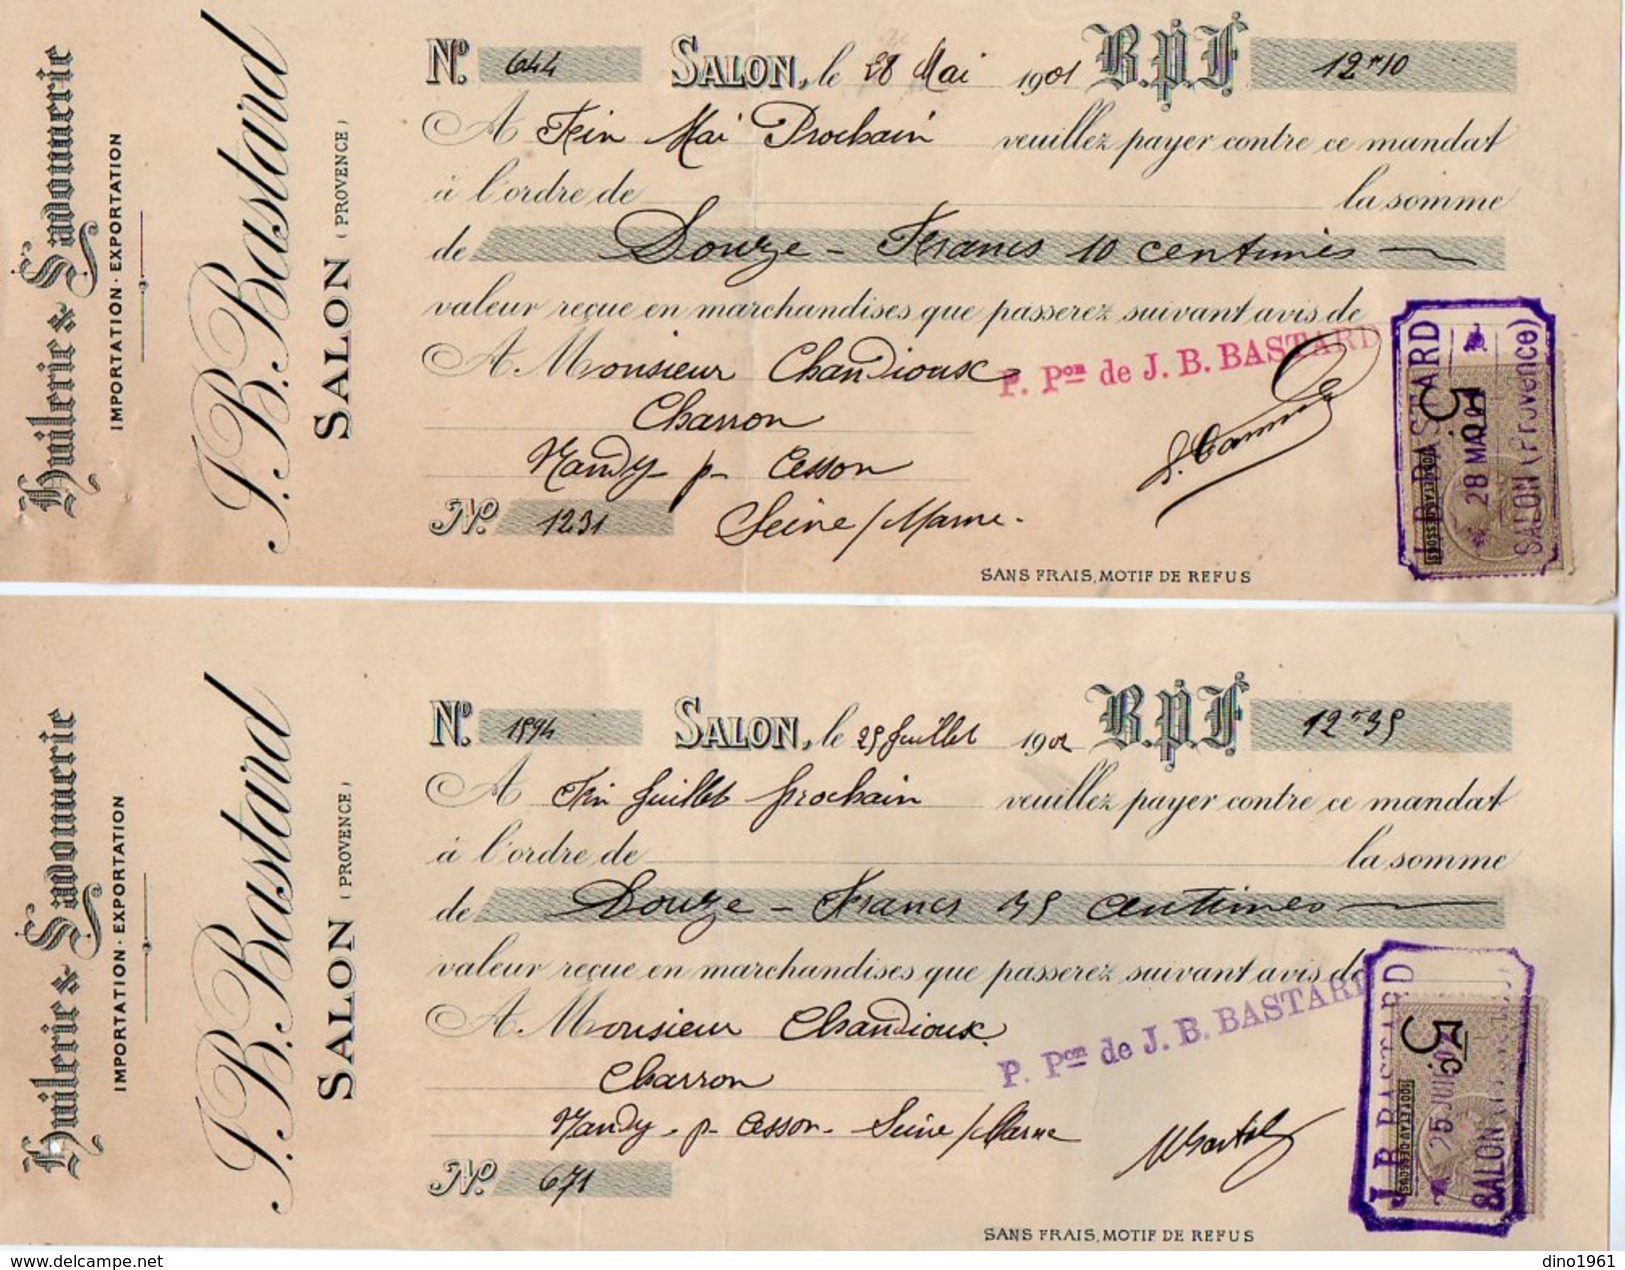 Huilerie & Savonnerie
IMPORTATION - EXPORTATION
J. B. Bastard
SALON (PROVENCE)
No. 644 SALON, le 28 Mai 1901 B.P.F 12 f 10
A Fin Mai Prochain veuillez payer contre ce mandat
à l'ordre de la somme
de Douze - Francs 10 centimes
valeur reçue en marchandises que passerez suivant avis de
P. Pon de J. B. BASTARD
A Monsieur Chandioux
Charron
Nandy p. Cesson
No. 1231 Seine/Marne.
SANS FRAIS, MOTIF DE REFUS
J. B. BASTARD
28 MAI 01
SALON (Provence)
5c
100F ET AU-DESSOUS
Huilerie & Savonnerie
IMPORTATION - EXPORTATION
J. B. Bastard
SALON (PROVENCE)
No. 1894 SALON, le 25 Juillet 1902 B.P.F 12 f 35
A Fin Juillet prochain veuillez payer contre ce mandat
à l'ordre de la somme
de Douze - Francs 35 centimes
valeur reçue en marchandises que passerez suivant avis de
P. Pon de J. B. BASTARD
A Monsieur Chandioux
Charron
Nandy - p. Cesson - Seine/Marne
No. 671
SANS FRAIS, MOTIF DE REFUS
J. B. BASTARD
25 JUIL 02
SALON (Provence)
5c
100F ET AU-DESSOUS
dino1961